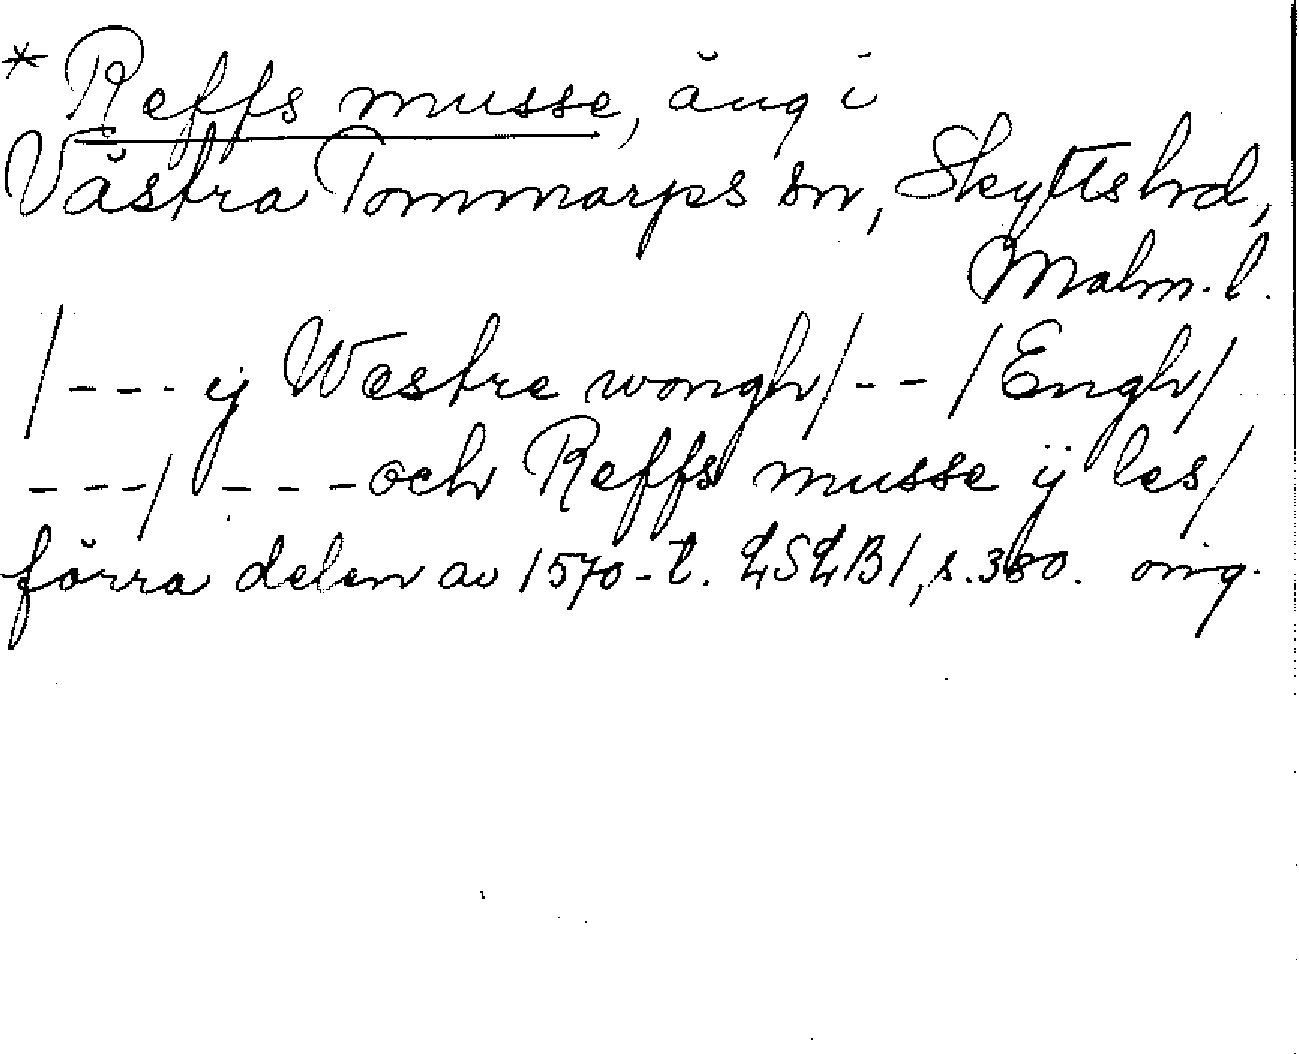 * Reffs musse, äng i
Västra Tommarps sn, Skytts hd,
Malm. l.
/--- ij Westre wongh/--/Engh/
---/ ---och Reffs musse ij les/
förra delen av 1570-t. LSLB1, s.380. orig.